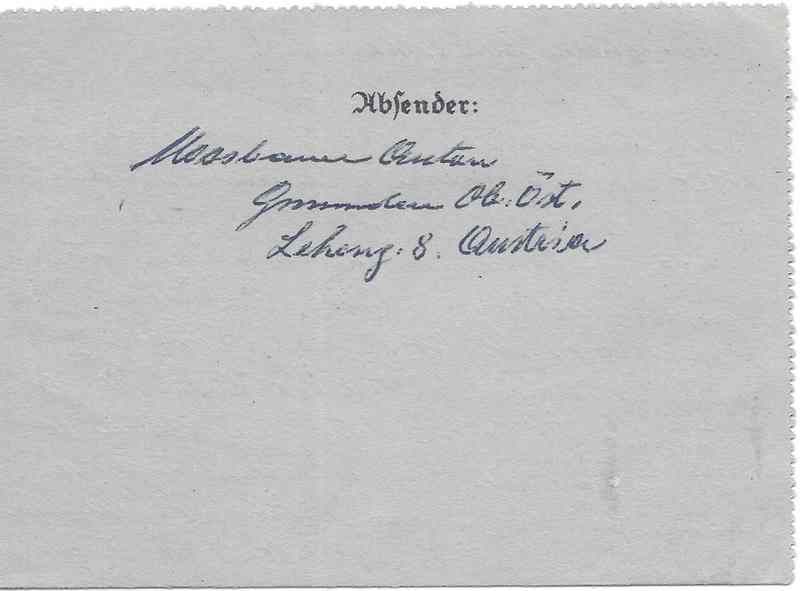 Absender:
Moosbauer Anton
Gmunden Ob. Öst.
Leheng. 8. Austria